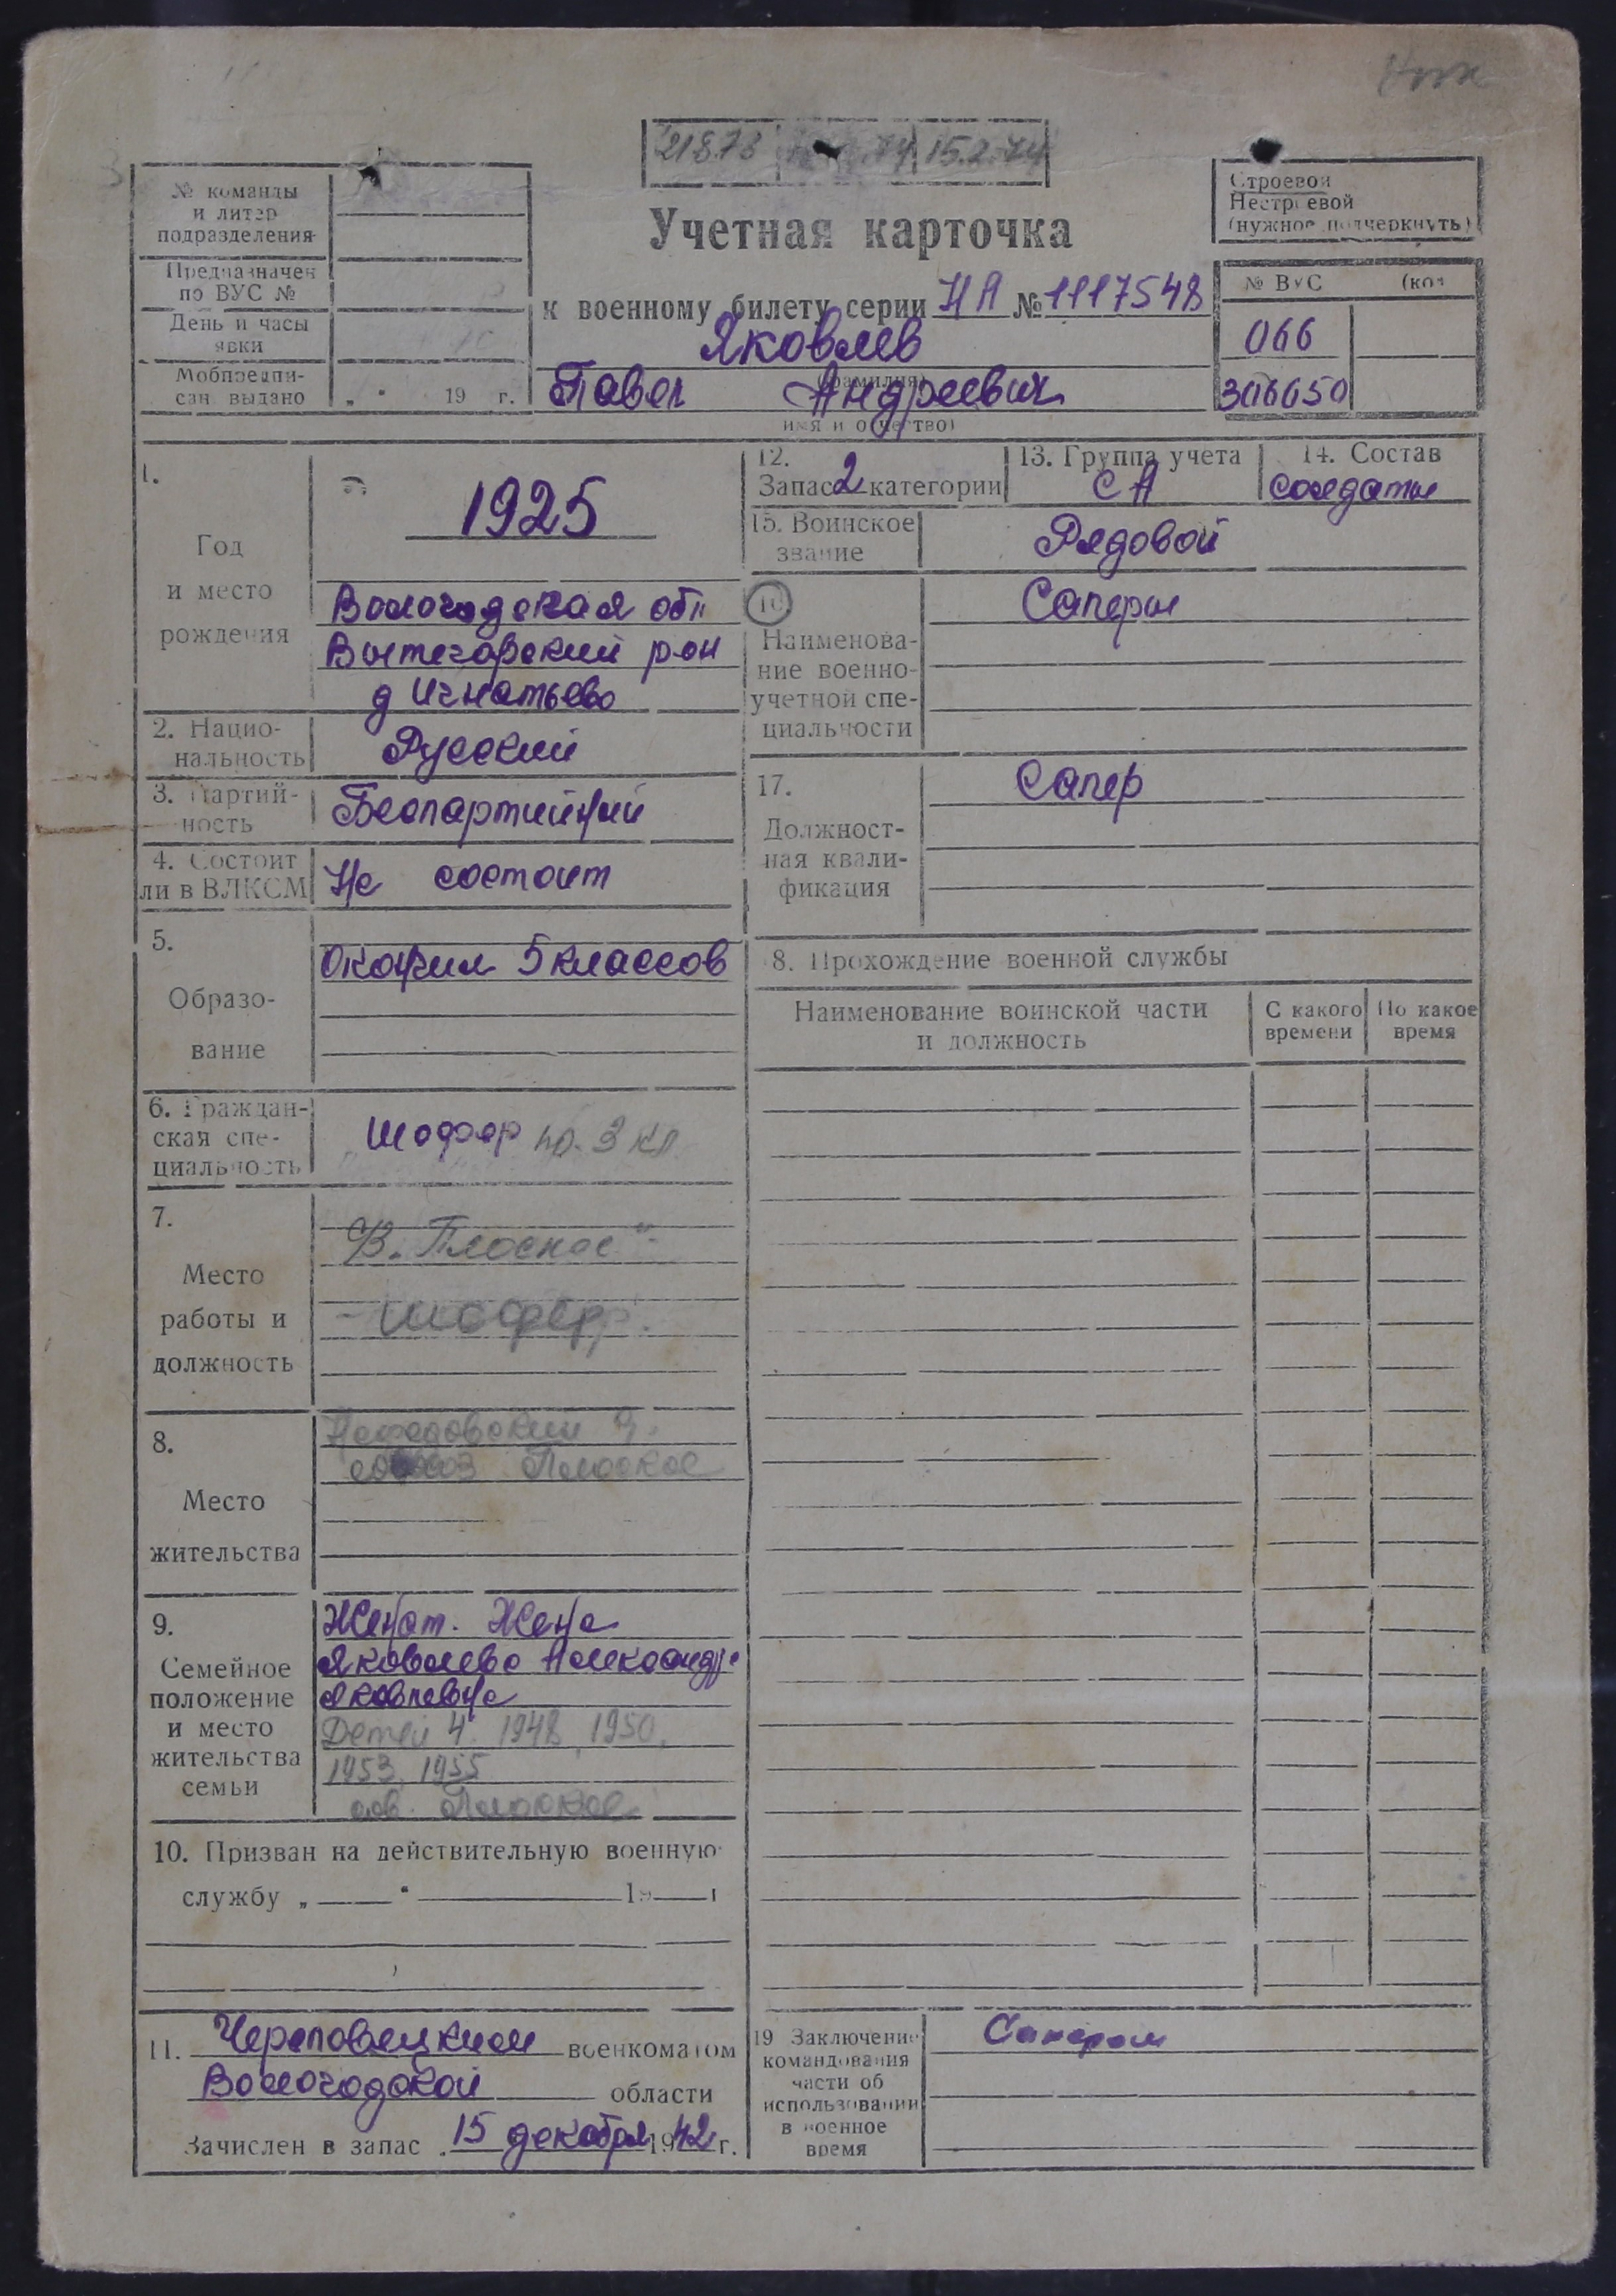 21873 74 15.2.74
№ команды
и литер
подразделения
Предназначен
по ВУС №
День и часы
явки
Мобпредпи-
сан. выдано „ " 19 г.
Строевой
Нестроевой
(нужное подчеркнуть)
Учетная карточка
к военному билету серии НА № 1117548
Яковлев
(фамилия)
Павел Андреевич
имя и отчество)
№ ВУС (код
066
306650
1.
Год
и место
рождения
1925
Вологодская обл
Вытегорский р-он
д Игнатьево
2. Нацио-
нальность
Русский
3. Партий-
ность
Беспартийный
4. Состоит
ли в ВЛКСМ
Не состоит
5.
Образо-
вание
Окончил 5 классов
6. Граждан-
ская спе-
циальность
Шофер пр. 3 кл
7.
Место
работы и
должность
"В. Плоское"
- шофер.
8.
Место
жительства
Плоское
9.
Семейное
положение
и место
жительства
семьи
Женат. Жена
Яковлева Александра
Яковлевна
Детей 4. 1948, 1950,
1953, 1955
сов. Плоское
10. Призван на действительную военную
службу „ " 19 г
11. Череповецким военкоматом
Вологодской области
Зачислен в запас „15 декабря 1942 г.
12.
Запас 2 категории
13. Группа учета
СА
14. Состав
солдаты
15. Воинское
звание
Рядовой
16
Наименова-
ние военно-
учетной спе-
циальности
Саперы
17.
Должност-
ная квали-
фикация
Сапер
8. Прохождение военной службы
Наименование воинской части
и должность
С какого
времени
По какое
время
19 Заключение
командования
части об
использовании
в военное
время
Сапером